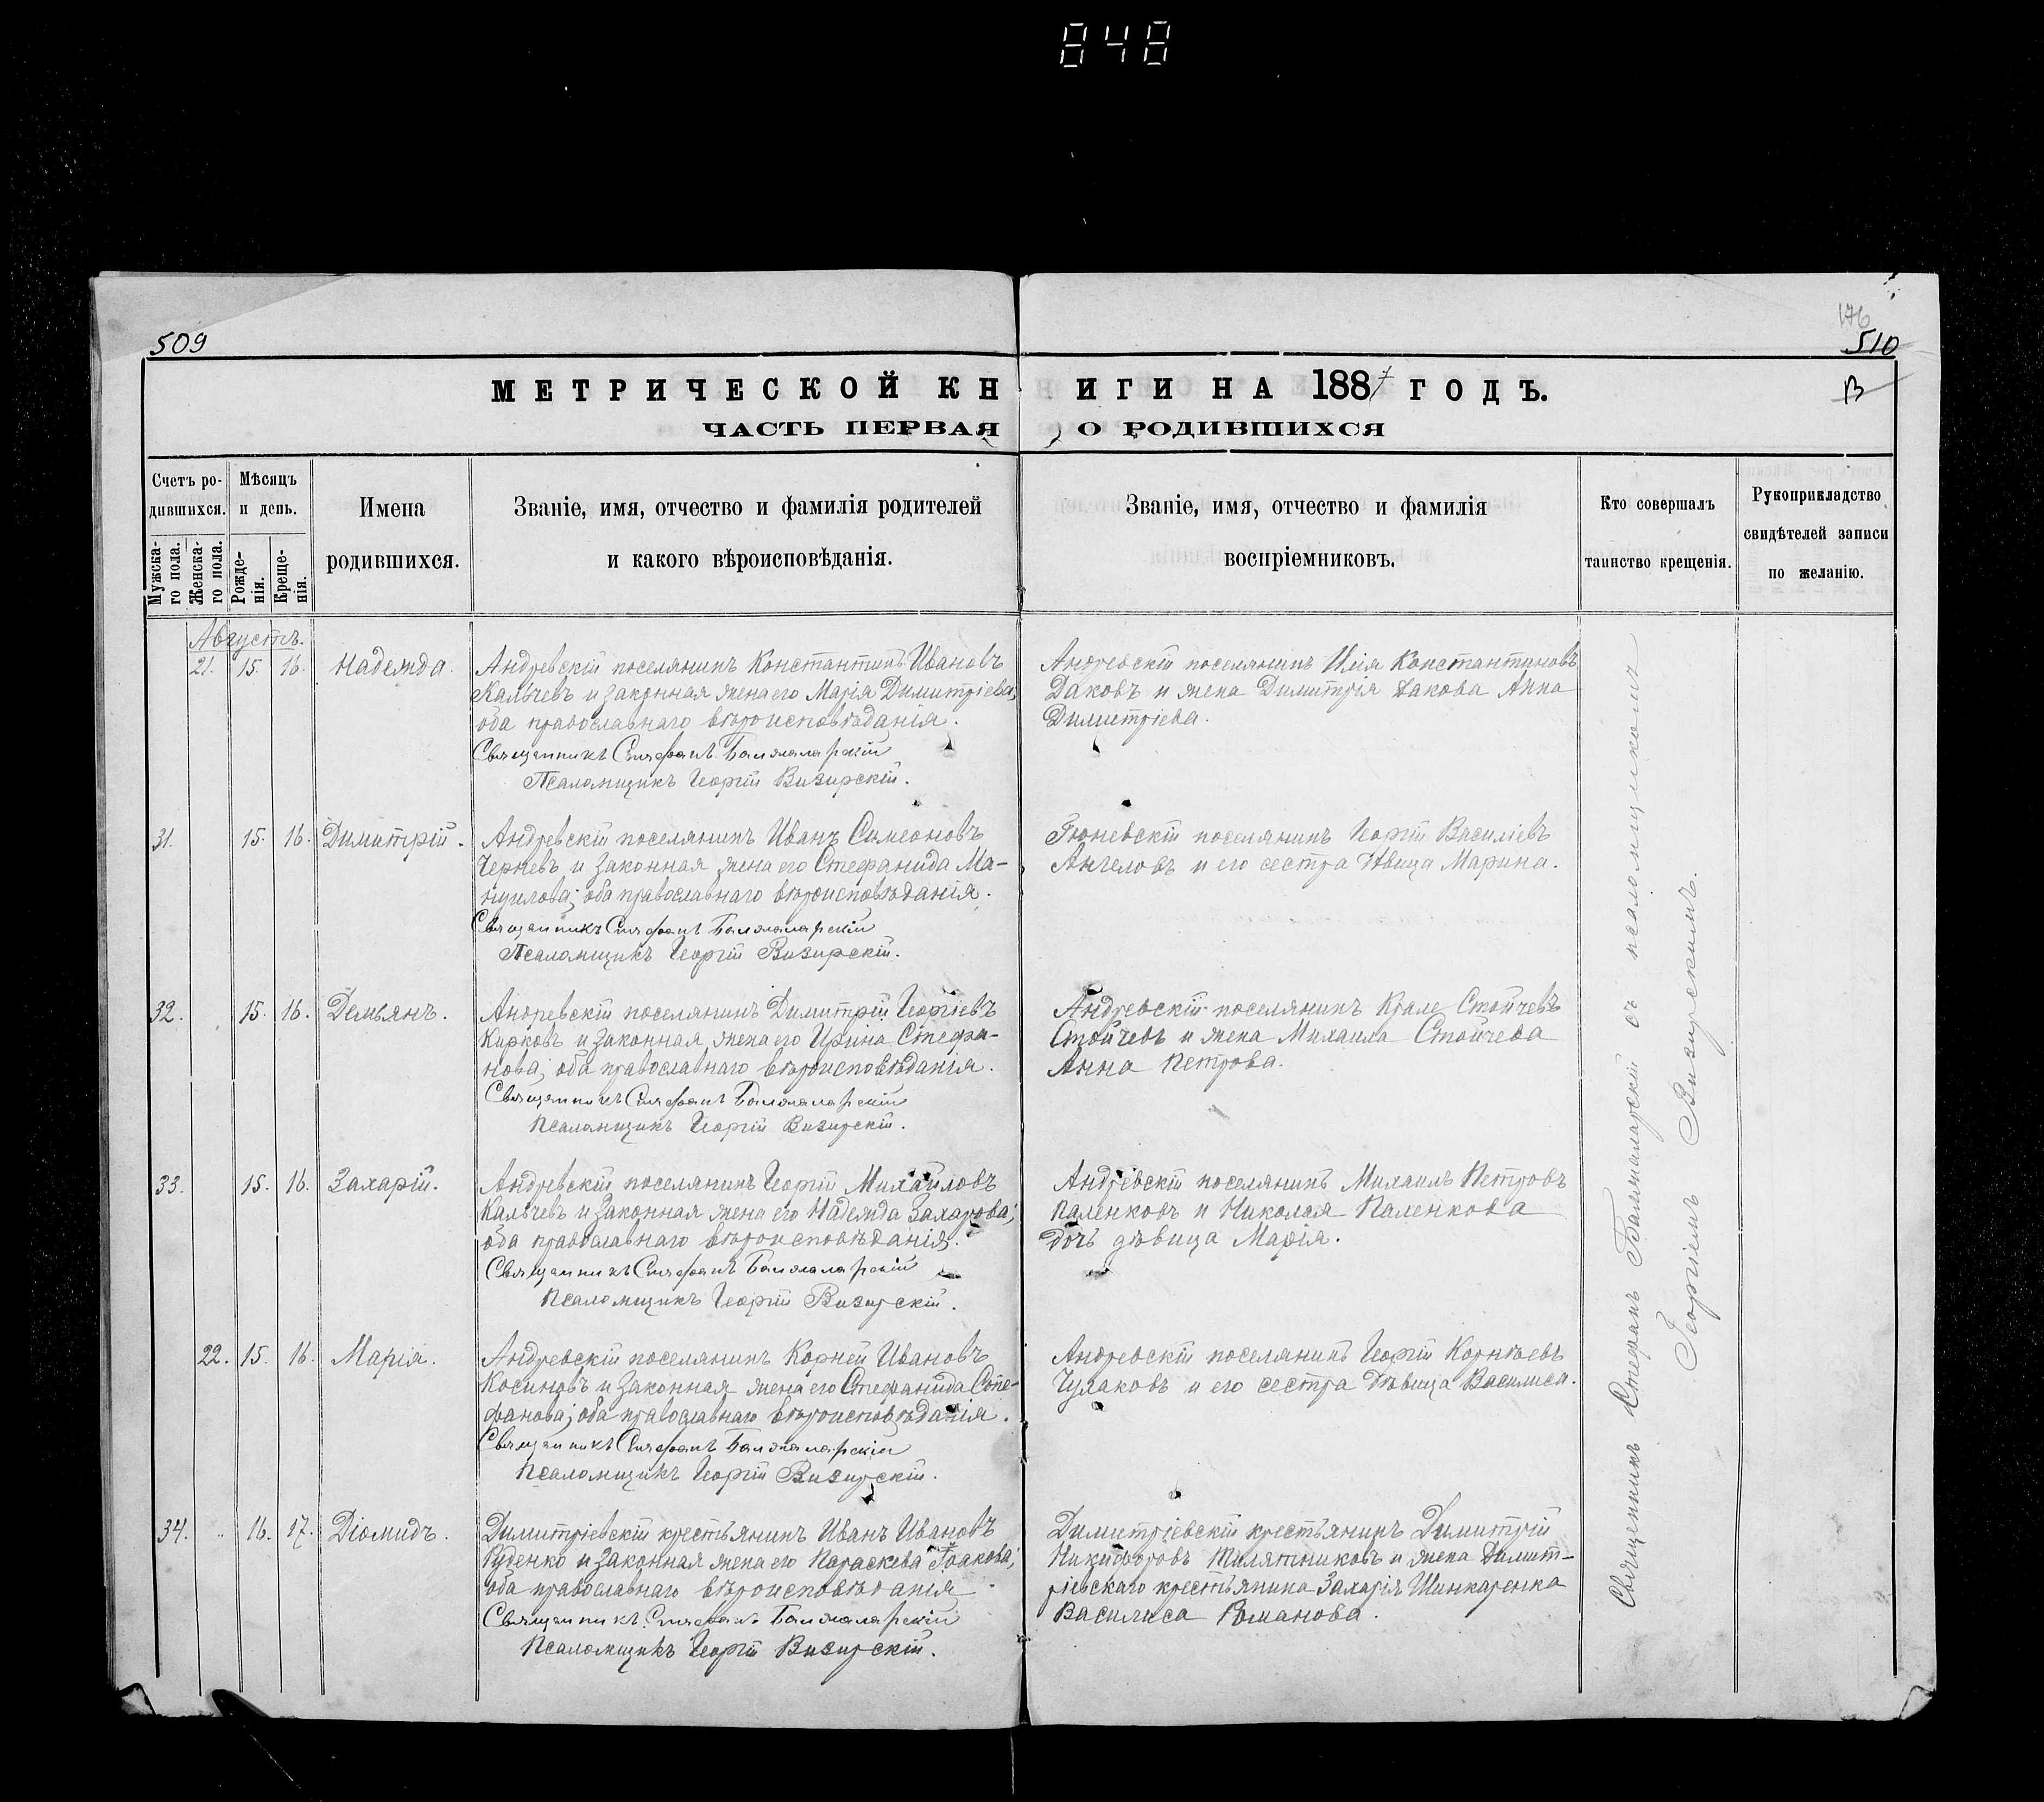 848
509
176
510
МЕТРИЧЕСКОЙ КНИГИ НА 1887 ГОДЪ.
В
ЧАСТЬ ПЕРВАЯ О РОДИВШИХСЯ
Счетъ родившихся.
Мужскаго пола.
Женскаго пола.
Мѣсяцъ и день.
Рожденія.
Крещенія.
Имена родившихся.
Званіе, имя, отчество и фамилія родителей
и какого вѣроисповѣданія.
Званіе, имя, отчество и фамилія
воспріемниковъ.
Кто совершалъ
таинство крещенія.
Рукоприкладство
свидѣтелей записи
по желанію.
Августъ.
21. 15. 16. Надежда.
Андревскій поселянинъ Константинъ Ивановъ
Калчевъ и законная жена его Марія Димитріева,
оба православнаго вѣроисповѣданія.
Священникъ Стефанъ Балжаларскій
Псаломщикъ Георгій Визирскій.
Андревскій поселянинъ Илія Константиновъ
Даковъ и жена Димитрія Дакова Анна
Димитріева.
31. 15. 16. Димитрій.
Андревскій поселянинъ Иванъ Симеоновъ
Черневъ и законная жена его Стефанида Ма-
нуилова; оба православнаго вѣроисповѣданія.
Священникъ Стефанъ Балжаларскій
Псаломщикъ Георгій Визирскій.
поселянинъ Георгій Василіевъ
Ангеловъ и его сестра дѣвица Марина.
32. 15. 16. Демьянъ.
Андревскій поселянинъ Димитрій Георгіевъ
Кирковъ и законная жена его Ирина Стефа-
нова; оба православнаго вѣроисповѣданія.
Священникъ Стефанъ Балжаларскій
Псаломщикъ Георгій Визирскій.
Андревскій поселянинъ Крале Стойчевъ
Стойчевъ и жена Михаила Стойчева
Анна Петрова.
33. 15. 16. Захарій.
Андревскій поселянинъ Георгій Михайловъ
Калчевъ и законная жена его Надежда Захарова;
оба православнаго вѣроисповѣданія.
Священникъ Стефанъ Балжаларскій
Псаломщикъ Георгій Визирскій.
Андревскій поселянинъ Михаилъ Петровъ
Паленковъ и Николая Паленкова
дочь дѣвица Марія.
22. 15. 16. Марія.
Андревскій поселянинъ Корней Ивановъ
Косиновъ и законная жена его Стефанида Сте-
фанова; оба православнаго вѣроисповѣданія.
Священникъ Стефанъ Балжаларскій
Псаломщикъ Георгій Визирскій.
Андревскій поселянинъ Георгій Корнѣевъ
Чулаковъ и его сестра дѣвица Василиса.
34. 16. 17. Діомидъ.
Димитріевскій крестьянинъ Иванъ Ивановъ
Руденко и законная жена его Параскева
оба православнаго вѣроисповѣданія
Священникъ Стефанъ Балжаларскій
Псаломщикъ Георгій Визирскій.
Димитріевскій крестьянинъ Димитрій
Никифоровъ и жена Димит-
ріевскаго крестьянина Захарія Шинкаренка
Василиса Романова.
Священникъ Стефанъ Балжаларскій съ псаломщикомъ
Георгіемъ Визирскимъ.